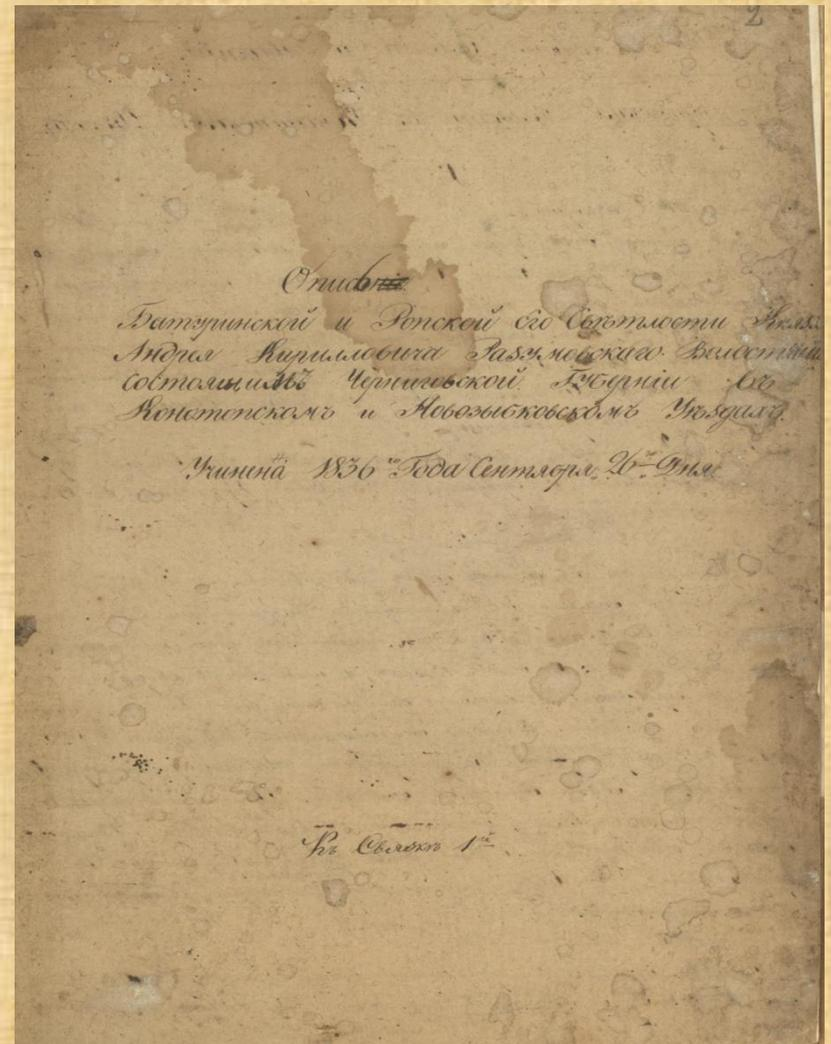 2
Опись
Батуринской и Ропской его Светлости Князя
Андрея Кирилловича Разумовскаго Волостямъ
состоящимъ Черниговской Губерніи въ
Конотопскомъ и Новозыбковскомъ Уѣздахъ.
Учинена 1836го Года Сентября 26го Дня
Къ Связкѣ 1й